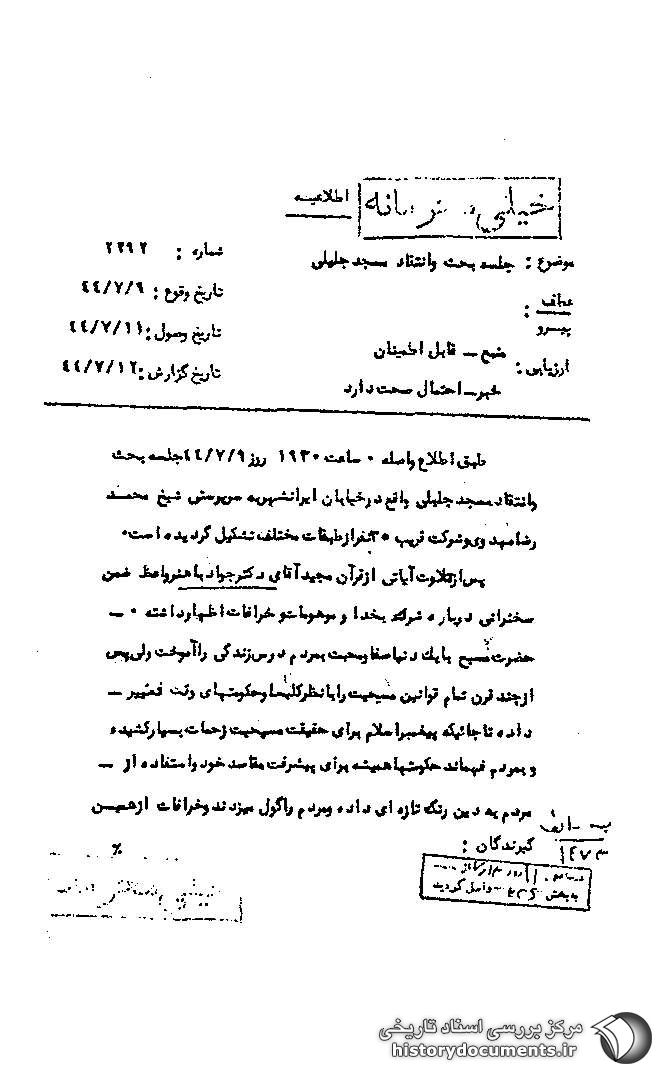 خیلی محرمانه
اطلاعیه
موضوع : جلسه بحث وانتقاد مسجد جلیلی
شماره : ۲۲۹۲
تاریخ وقوع : ۴۴/۷/۹
عطف
پیرو :
تاریخ وصول : ۴۴/۷/۱۱
ارزیابی : منبع ـ قابل اطمینان
تاریخ گزارش : ۴۴/۷/۱۲
خبر ـ احتمال صحت دارد
طبق اطلاع واصله ۰ ساعت ۱۹۳۰ روز ۴۴/۷/۹ جلسه بحث
وانتقاد مسجد جلیلی واقع در خیابان ایرانشهر به سرپرستی شیخ محمد
رضا مهدوی و شرکت قریب ۳۰ نفر از طبقات مختلف تشکیل گردیده است۰
پس از تلاوت آیاتی از قرآن مجید آقای دکتر جواد باهنر واعظ ضمن
سخنرانی درباره شرک بخدا و موهومات و خرافات اظهار داشته ۰ ـ
حضرت مسیح با یک دنیا صفا ومحبت بمردم درس زندگی را آموخت ولی پس
از چند قرن تمام قوانین مسیحیت را با نظر کلیسا و حکومتهای وقت تغییر ـ
داده تا جائیکه پیغمبر اسلام برای حقیقت مسیحیت زحمات بسیار کشیده
و بمردم فهماند حکومتها همیشه برای پیشرفت مقاصد خود واستفاده از ـ
مردم به دین رنگ تازه ای داده ومردم را گول میزدند وخرافات از همین
گیرندگان :
٪
به بخش واصل گردید
مرکز بررسی اسناد تاریخی
historydocuments.ir